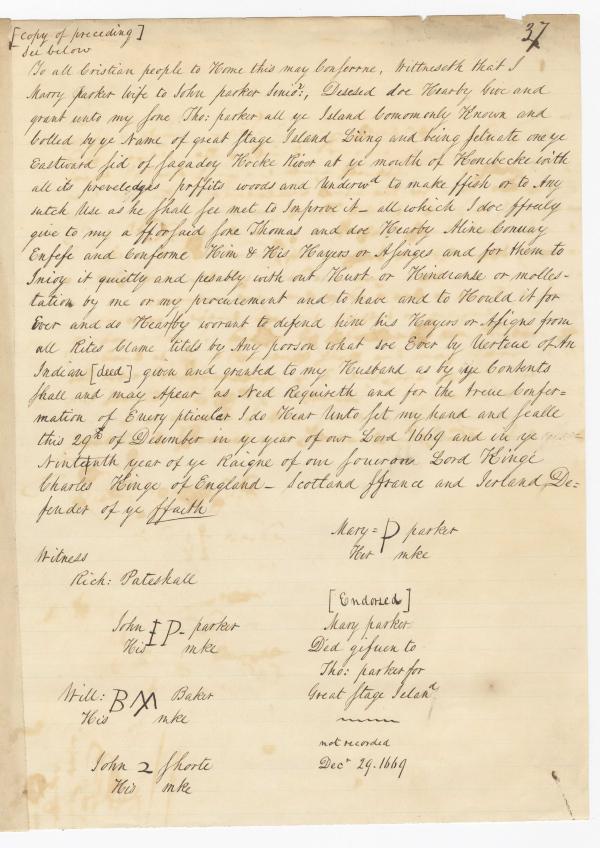 [copy of preceding]
See below
37
To all Cristian people to Home this may Conserne, Wittneseth that I
Marry parker wife to John parker Senior:, Desesed doe Hearby Give and
grant unto my sone Tho: parker all ye Island Comomonly Known and
Colled by ye Name of great Stage Island Liing and being setuate one ye
Eastward sid of Sagadoy Hocke River at ye mouth of Kenebecke with
all its preveledges prffits woods and Underwd to make ffish or to Any
sutch Use as he shall see met to Improve it – all which I doe ffreily
give to my afforsaid sone Thomas and doe Hearby Mine Convay
Enfefe and Conferme Him & His Hayers or Asinges and for them to
Injoy it quietly and pesably with out Hurt or Hindranse or molles-
tation by me or my procurement and to have and to Hould it for
Ever and do Hearby worant to defend him his Hayers or Asigns from
all Rites Clame titels by Any person what soe Ever by Verteue of An
Indian [deed] given and granted to my Husband as by ye Contents
shall and may Apear as Ned Requireth and for the treue Confer=
mation of Every pticuler I do Hear Unto set my hand and sealle
this 29th of Desember in ye year of our Lord 1669 and in ye
Nintenth year of ye Raigne of our Soueron Lord Kinge
Charles Kinge of England – Scotland ffrance and Ierland De=
fender of ye ffaith
Mary = P parker
Her mke
Witness
Rich: Pateshall
John IP – parker
His mke
Will: BM Baker
His mke
John 2 Shorte
His mke
[Endorsed]
Mary parker
Ded gifuen to
Tho: parker for
Great Stage Island
not recorded
Decr 29. 1669